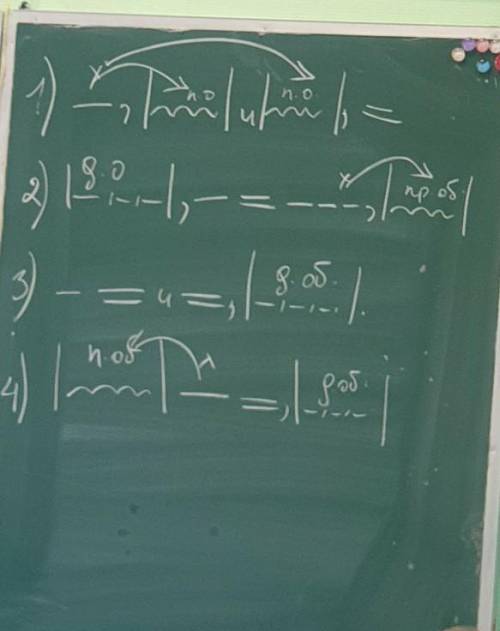 1) —, |п.о| и |п.о.|, =
2) |д.о|, — = - - -, |пр.об.|
3) — = и =, |д.об.|.
4) |п.об| — =, |д.об.|